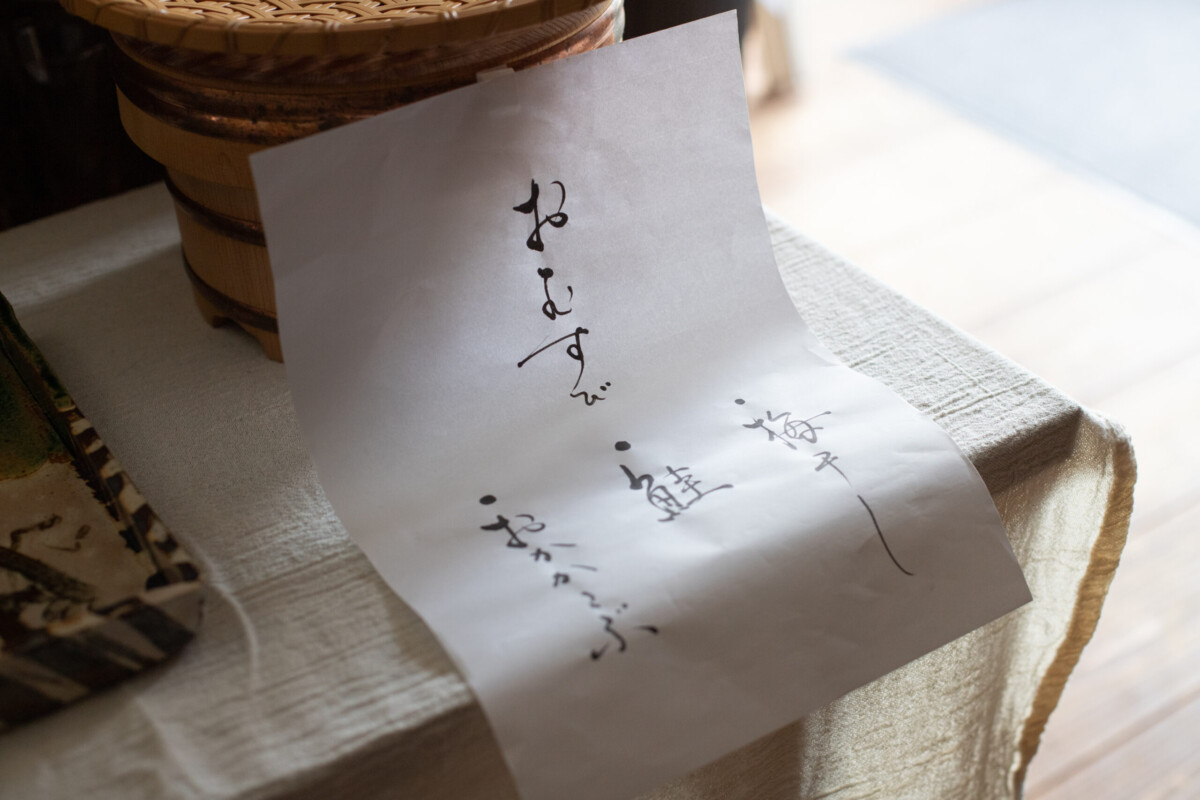 おむすび
・梅干し
・鮭
・おかかこぶ